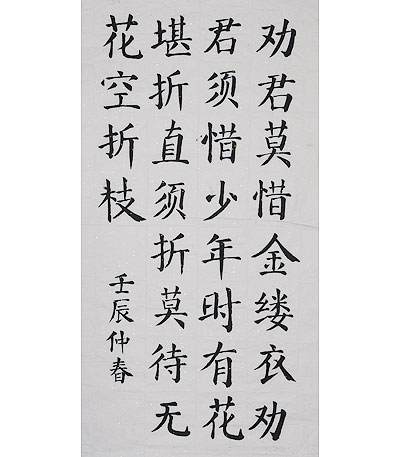 劝君莫惜金缕衣劝
君须惜少年时有花
堪折直须折莫待无
花空折枝
壬辰仲春